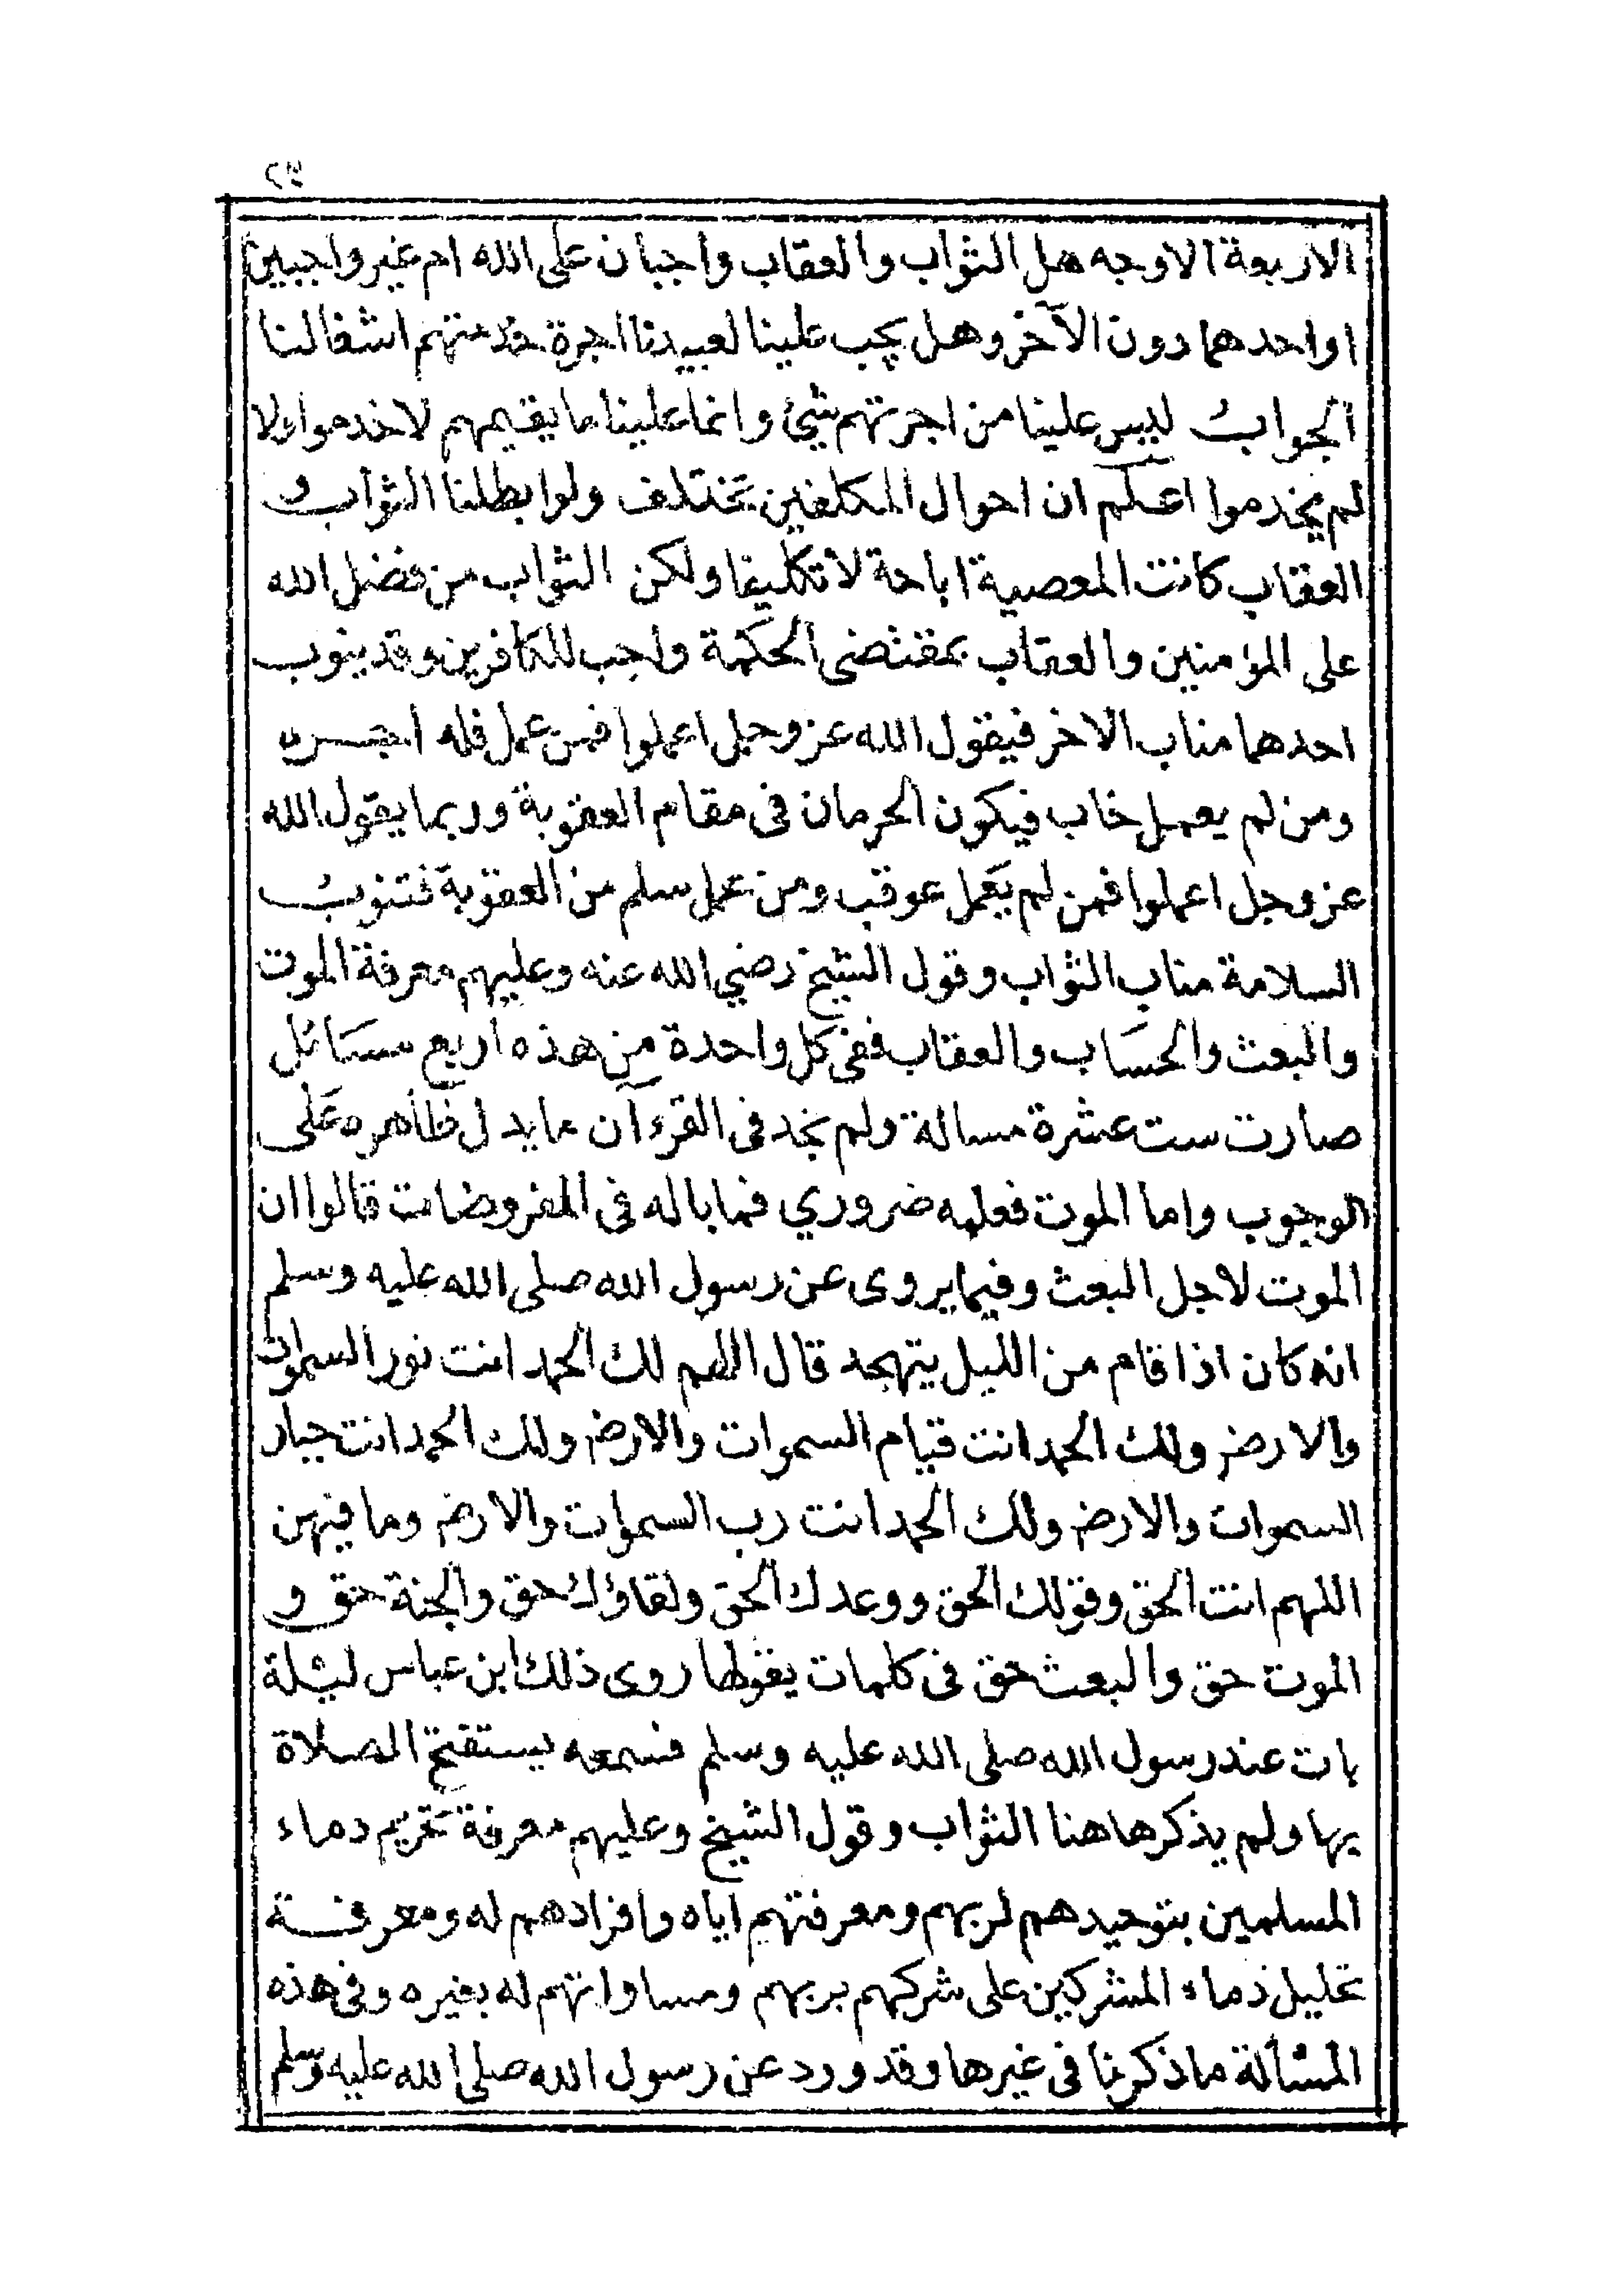 الاربعة الاوجه هل الثواب والعقاب واجبان على الله ام غير واجبين
او احدهما دون الآخر وهل يجب علينا لعبيدنا اجرة خدمتهم اشغالنا
الجواب ليس علينا من اجرتهم شيئ وانما علينا ما يقيمهم لاخدموا ولا
لم يخدموا اعلم ان احوال المكلفين تختلف ولو ابطلنا الثواب و
العقاب كانت المعصية اباحة لا تكليفا ولكن الثواب من فضل الله
على المؤمنين والعقاب بمقتضى الحكمة واجب للكافرين وقد ينوب
احدهما مناب الاخر فيقول الله عز وجل اعملوا فمن عمل فله اجره
ومن لم يعمل خاب فيكون الحرمان فى مقام العقوبة وربما يقول الله
عز وجل اعملوا فمن لم يعمل عوقب ومن عمل سلم من العقوبة فتنوب
السلامة مناب الثواب وقول الشيخ رضي الله عنه وعليهم معرفة الموت
والبعث والحساب والعقاب ففى كل واحدة من هذه اربع مسائل
صارت ست عشرة مسالة ولم نجد فى القرءآن ما يدل ظاهره على
الوجوب واما الموت فعلمه ضروري فما باله فى المفروضات قالوا ان
الموت لاجل البعث وفيما يروى عن رسول الله صلى الله عليه وسلم
انه كان اذا قام من الليل يتهجد قال اللهم لك الحمد انت نور السموات
والارض ولك الحمد انت قيام السموات والارض ولك الحمد انت جبار
السموات والارض ولك الحمد انت رب السموات والارض وما فيهن
اللهم انت الحق وقولك الحق ووعدك الحق ولقاؤك حق والجنة حق و
الموت حق والبعث حق فى كلمات يقولها روى ذلك ابن عباس ليلة
بات عند رسول الله صلى الله عليه وسلم فسمعه يستفتح الصلاة
بها ولم يذكر هاهنا الثواب وقول الشيخ وعليهم معرفة تحريم دماء
المسلمين بتوحيدهم لربهم ومعرفتهم اياه وافرادهم له ومعرفة
تحليل دماء المشركين على شركهم بربهم ومساواتهم له بغيره وفى هذه
المسألة ما ذكرنا فى غيرها وقد ورد عن رسول الله صلى الله عليه وسلم